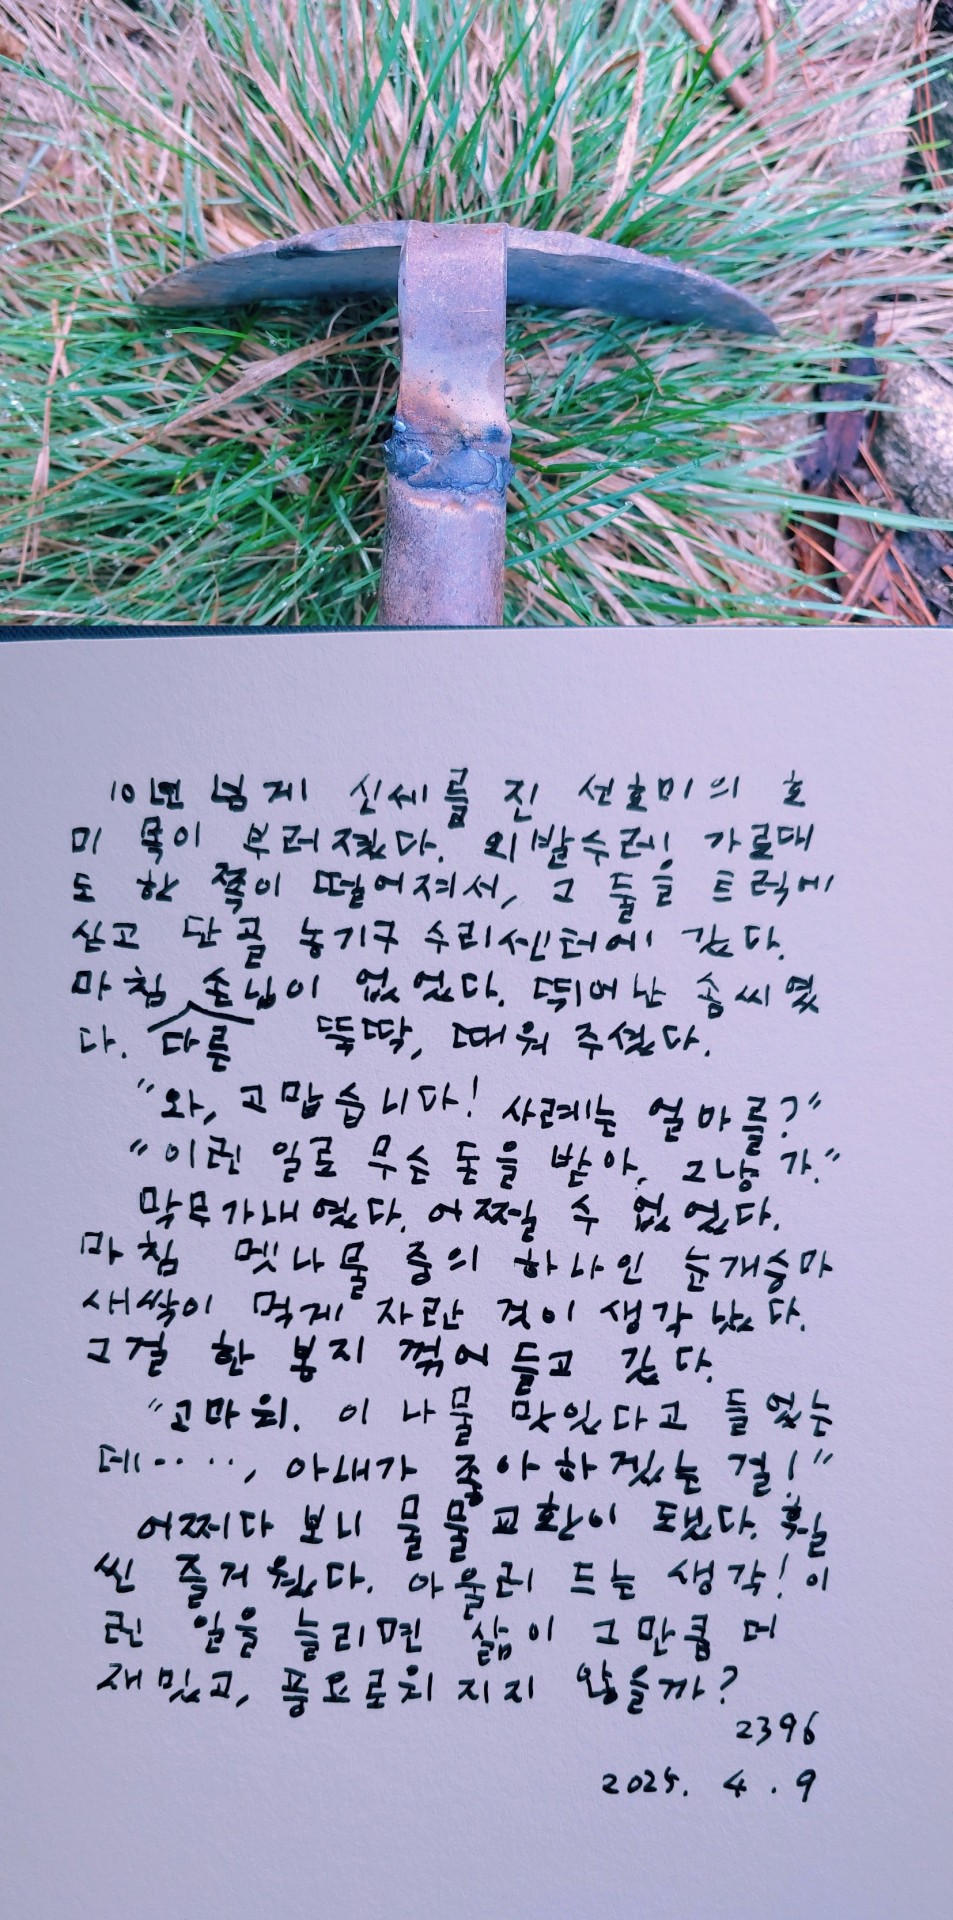 10년 넘게 신세를 진 선호미의 호
미 목이 부러졌다. 외발수레 가로대
도 한 쪽이 떨어져서, 그 둘을 트럭에
싣고 단골 농기구 수리센터에 갔다.
마침 손님이 없었다. 뛰어난 솜씨였
다. 다른 뚝딱, 때워 주셨다.
"와, 고맙습니다! 사례는 얼마를?"
"이런 일로 무슨 돈을 받아. 그냥 가."
막무가내였다. 어쩔 수 없었다.
마침 멧나물 중의 하나인 눈개승마
새싹이 먹게 자란 것이 생각났다.
그걸 한 봉지 꺾어 들고 갔다.
"고마워. 이 나물 맛있다고 들었는
데‥‥‥, 아내가 좋아하겠는 걸!"
어쩌다 보니 물물교환이 됐다. 훨
씬 즐거웠다. 아울러 드는 생각! 이
런 일을 늘리면 삶이 그만큼 더
재밌고, 풍요로워지지 않을까?
2396
2025. 4. 9